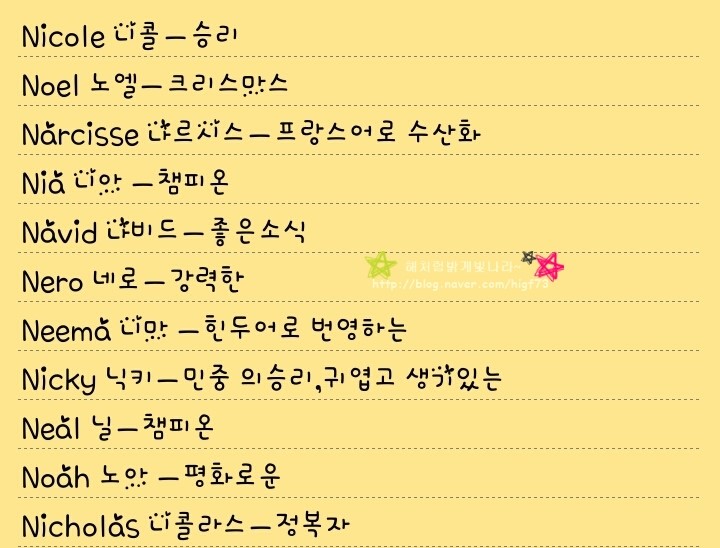 Nicole 니콜 - 승리
Noel 노엘 - 크리스맛스
Narcisse 나르시스 - 프랑스어로 수산화
Nia 니아 - 챔피온
Navid 나비드 - 좋은소식
해처럼밝게빛나라~
Nero 네로 - 강력한
http://blog.naver.com/higf73
Neema 니마 - 힌두어로 번영하는
Nicky 닉키 - 민중 의승리,귀엽고 생기있는
Neal 닐 - 챔피온
Noah 노아 - 평화로운
Nicholas 니콜라스 - 정복자